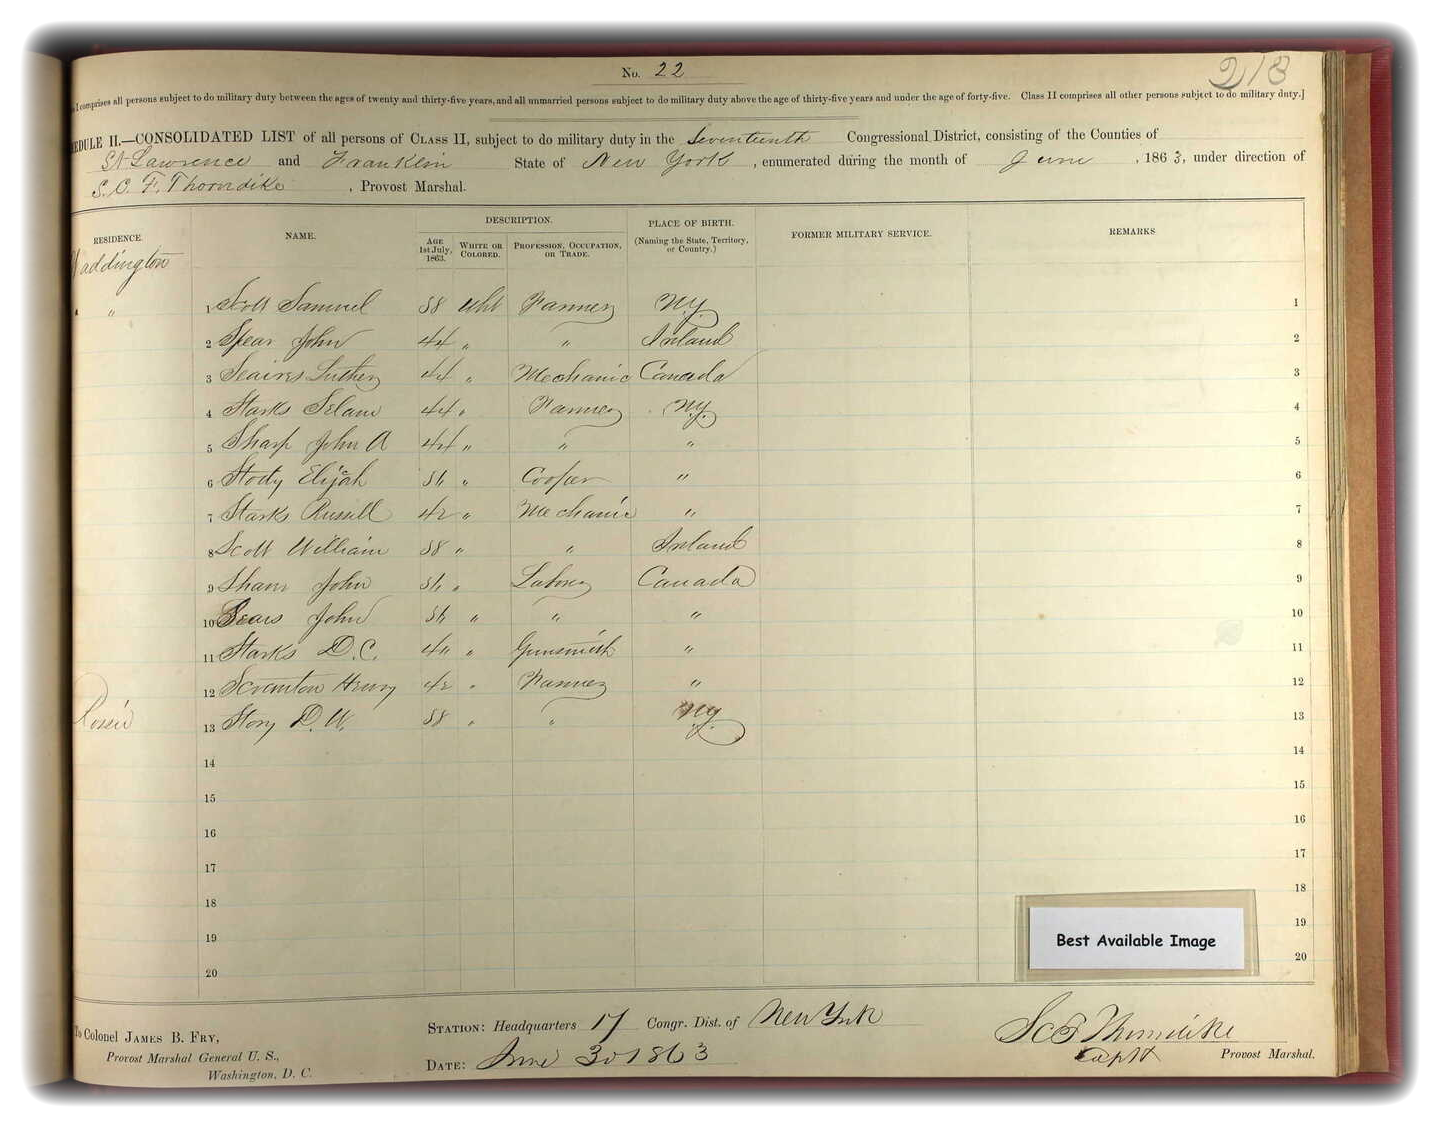 No. 22
213
comprises all persons subject to do military duty between the ages of twenty and thirty-five years, and all unmarried persons subject to do military duty above the age of thirty-five years and under the age of forty-five. Class II comprises all other persons subject to do military duty.]
EDULE II.—CONSOLIDATED LIST of all persons of CLASS II, subject to do military duty in the Seventeenth Congressional District, consisting of the Counties of
St Lawrence and Franklin State of New York, enumerated during the month of June, 1863, under direction of
S. C. F. Thorndike, Provost Marshal.
RESIDENCE. NAME. DESCRIPTION. PLACE OF BIRTH. (Naming the State, Territory, or Country.) FORMER MILITARY SERVICE. REMARKS
AGE 1st July, 1863. WHITE OR COLORED. PROFESSION, OCCUPATION, OR TRADE.
Waddington
" 1 Scott Samuel 38 Wht Farmer N.Y. 1
2 Spear John 44 " " Ireland 2
3 Luther 44 " Mechanic Canada 3
4 Starks 44 " Farmer N.Y. 4
5 Sharp John A 44 " " " 5
6 Elijah 36 " Cooper " 6
7 Starks Russell 42 " Mechanic " 7
8 Scott William 38 " " Ireland 8
9 John 36 " Laborer Canada 9
10 Sears John 36 " " " 10
11 Starks D.C. " Gunsmith " 11
12 Scranton Henry 42 " Farmer " 12
Rossie 13 Story D. W. 38 " " N.Y. 13
14 14
15 15
16 16
17 17
18 18
19 19
20 20
Best Available Image
To Colonel JAMES B. FRY,
Provost Marshal General U. S.,
Washington, D. C.
STATION: Headquarters 17 Congr. Dist. of New York
DATE: June 30 1863
S C F Thorndike
Capt & Provost Marshal.